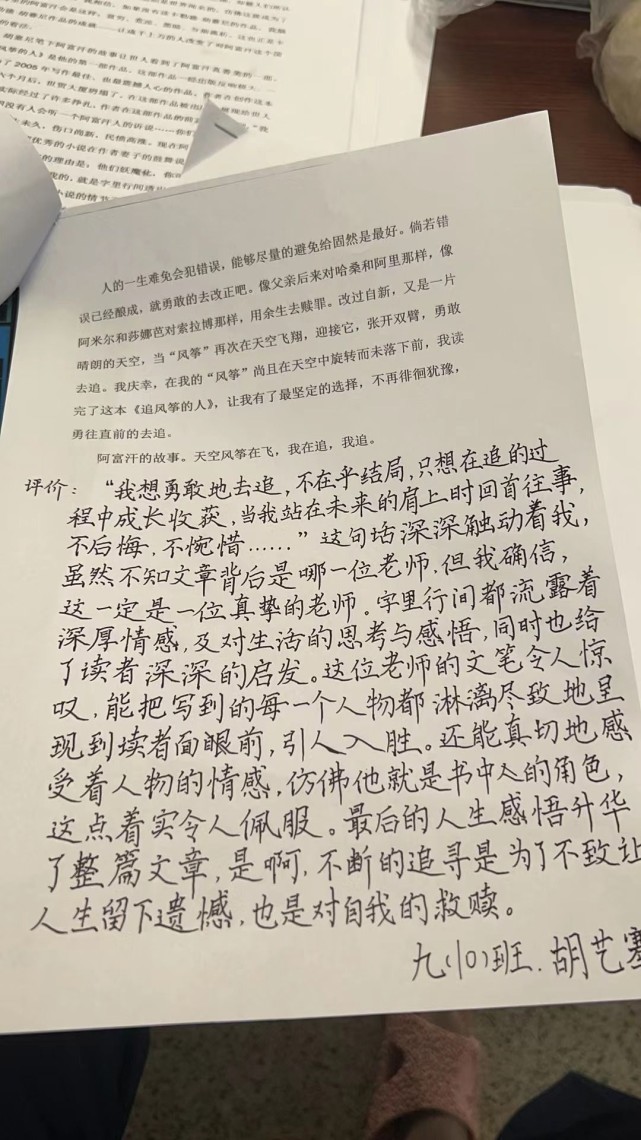 人的一生难免会犯错误，能够尽量的避免给固然是最好。倘若错
误已经酿成，就勇敢的去改正吧。像父亲后来对哈桑和阿里那样，像
阿米尔和莎娜芭对索拉博那样，用余生去赎罪。改过自新，又是一片
晴朗的天空，当“风筝”再次在天空飞翔，迎接它，张开双臂，勇敢
去追。我庆幸，在我的“风筝”尚且在天空中旋转而未落下前，我读
完了这本《追风筝的人》，让我有了最坚定的选择，不再徘徊犹豫，
勇往直前的去追。
阿富汗的故事。天空风筝在飞，我在追，我追。
评价：“我想勇敢地去追，不在乎结局，只想在追的过
程中成长收获，当我站在未来的肩上时回首往事，
不后悔，不惋惜……”这句话深深触动着我，
虽然不知文章背后是哪一位老师，但我确信，
这一定是一位真挚的老师。字里行间都流露着
深厚情感，及对生活的思考与感悟，同时也给
了读者深深的启发。这位老师的文笔令人惊
叹，能把写到的每一个人物都淋漓尽致地呈
现到读者面眼前，引人入胜。还能真切地感
受着人物的情感，仿佛他就是书中人的角色，
这点着实令人佩服。最后的人生感悟升华
了整篇文章，是啊，不断的追寻是为了不致让
人生留下遗憾，也是对自我的救赎。
九(10)班.胡艺